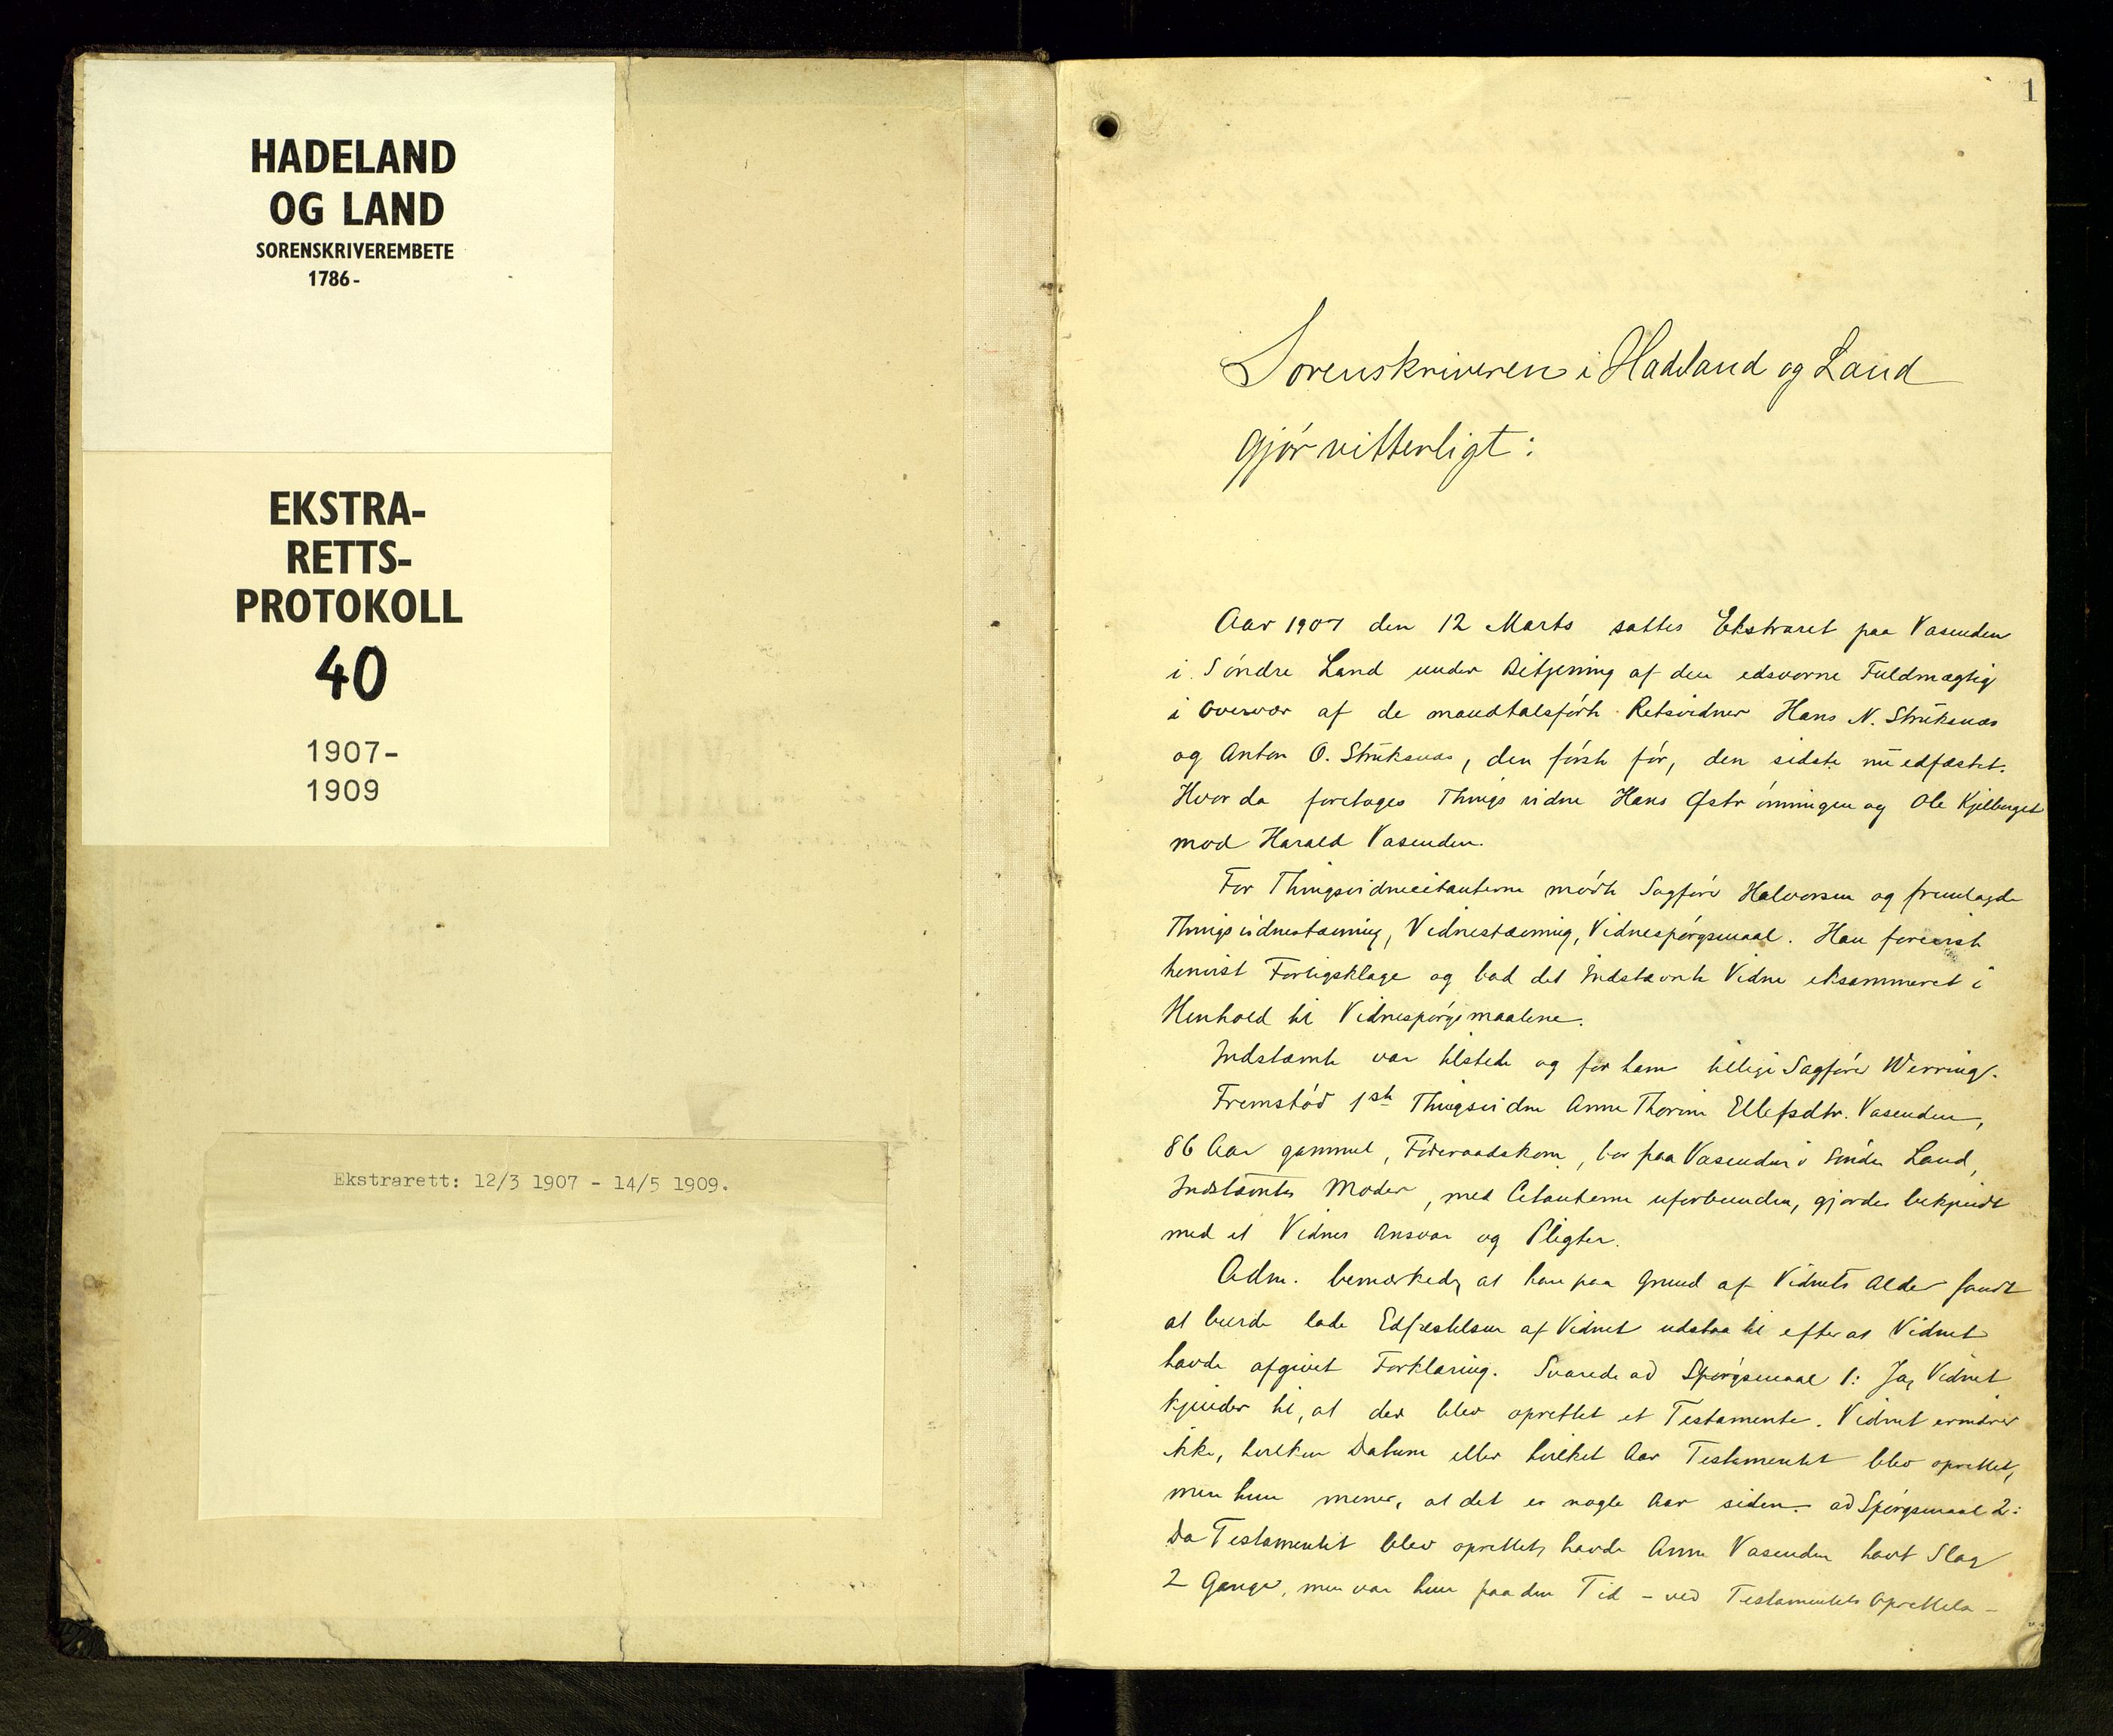 HADELAND
OG LAND
SORENSKRIVEREMBETE
1786-
EKSTRA-
RETTS-
PROTOKOLL
40
1907-
1909
Ekstrarett: 12/3 1907 - 14/5 1909.
1
Sorenskriveren i Hadeland og Land
gjør vitterligt:
Aar 1907 den 12 Marts sattes Ekstraret paa Vasenden
i Søndre Land under Betjening af den edsvorne Fuldmægtig
i Overvær af de mandtalsførte Retsvidner Hans N. Struksnæs
og Anton O. Struksnæs, den første før, den sidste nu edfæstet.
Hvorda foretoges Thingsvidne Hans og Ole Kjelberget
mod Harald Vasenden.
For Thingsvidnecitanterne mødte Sagfører Halvorsen og fremlagde
Thingsvidnestævning, Vidnestævning, Vidnespørgsmaal. Han foreviste
henvist Forligsklage og bad det Indstævnte Vidne eksammeret i
Henhold til Vidnespørgsmaalene.
Indstævnte var tilstede og for ham tillige Sagfører Werring.
Fremstod 1ste Thingsvidne Anne Thorine Ellefsdtr. Vasenden,
86 Aar gammel, Føderaadskone, bor paa Vasenden i Søndre Land,
Indstævntes Moder, med Citanterne uforbunden, gjordes bekjendt
med et Vidnes Ansvar og Pligter.
Adm. bemærkede, at han paa Grund af Vidnets Alder fandt
at burde lade Edfæstelsen af Vidnet udstaa til efter at Vidnet
havde afgivet Forklaring. Svarede ad Spørgsmaal 1: Ja, Vidnet
kjender til, at der blev oprettet et Testamente. Vidnet erindrer
ikke, hvilken Datum eller hvilket Aar Testamentet blev oprettet,
men hun mener, at det er nogle Aar siden. ad Spørgsmaal 2:
Da Testamentet blev oprettet, havde Anne Vasenden havt Slag
2 Gange, men var hun paa den Tid - ved Testamentets Oprettelse -